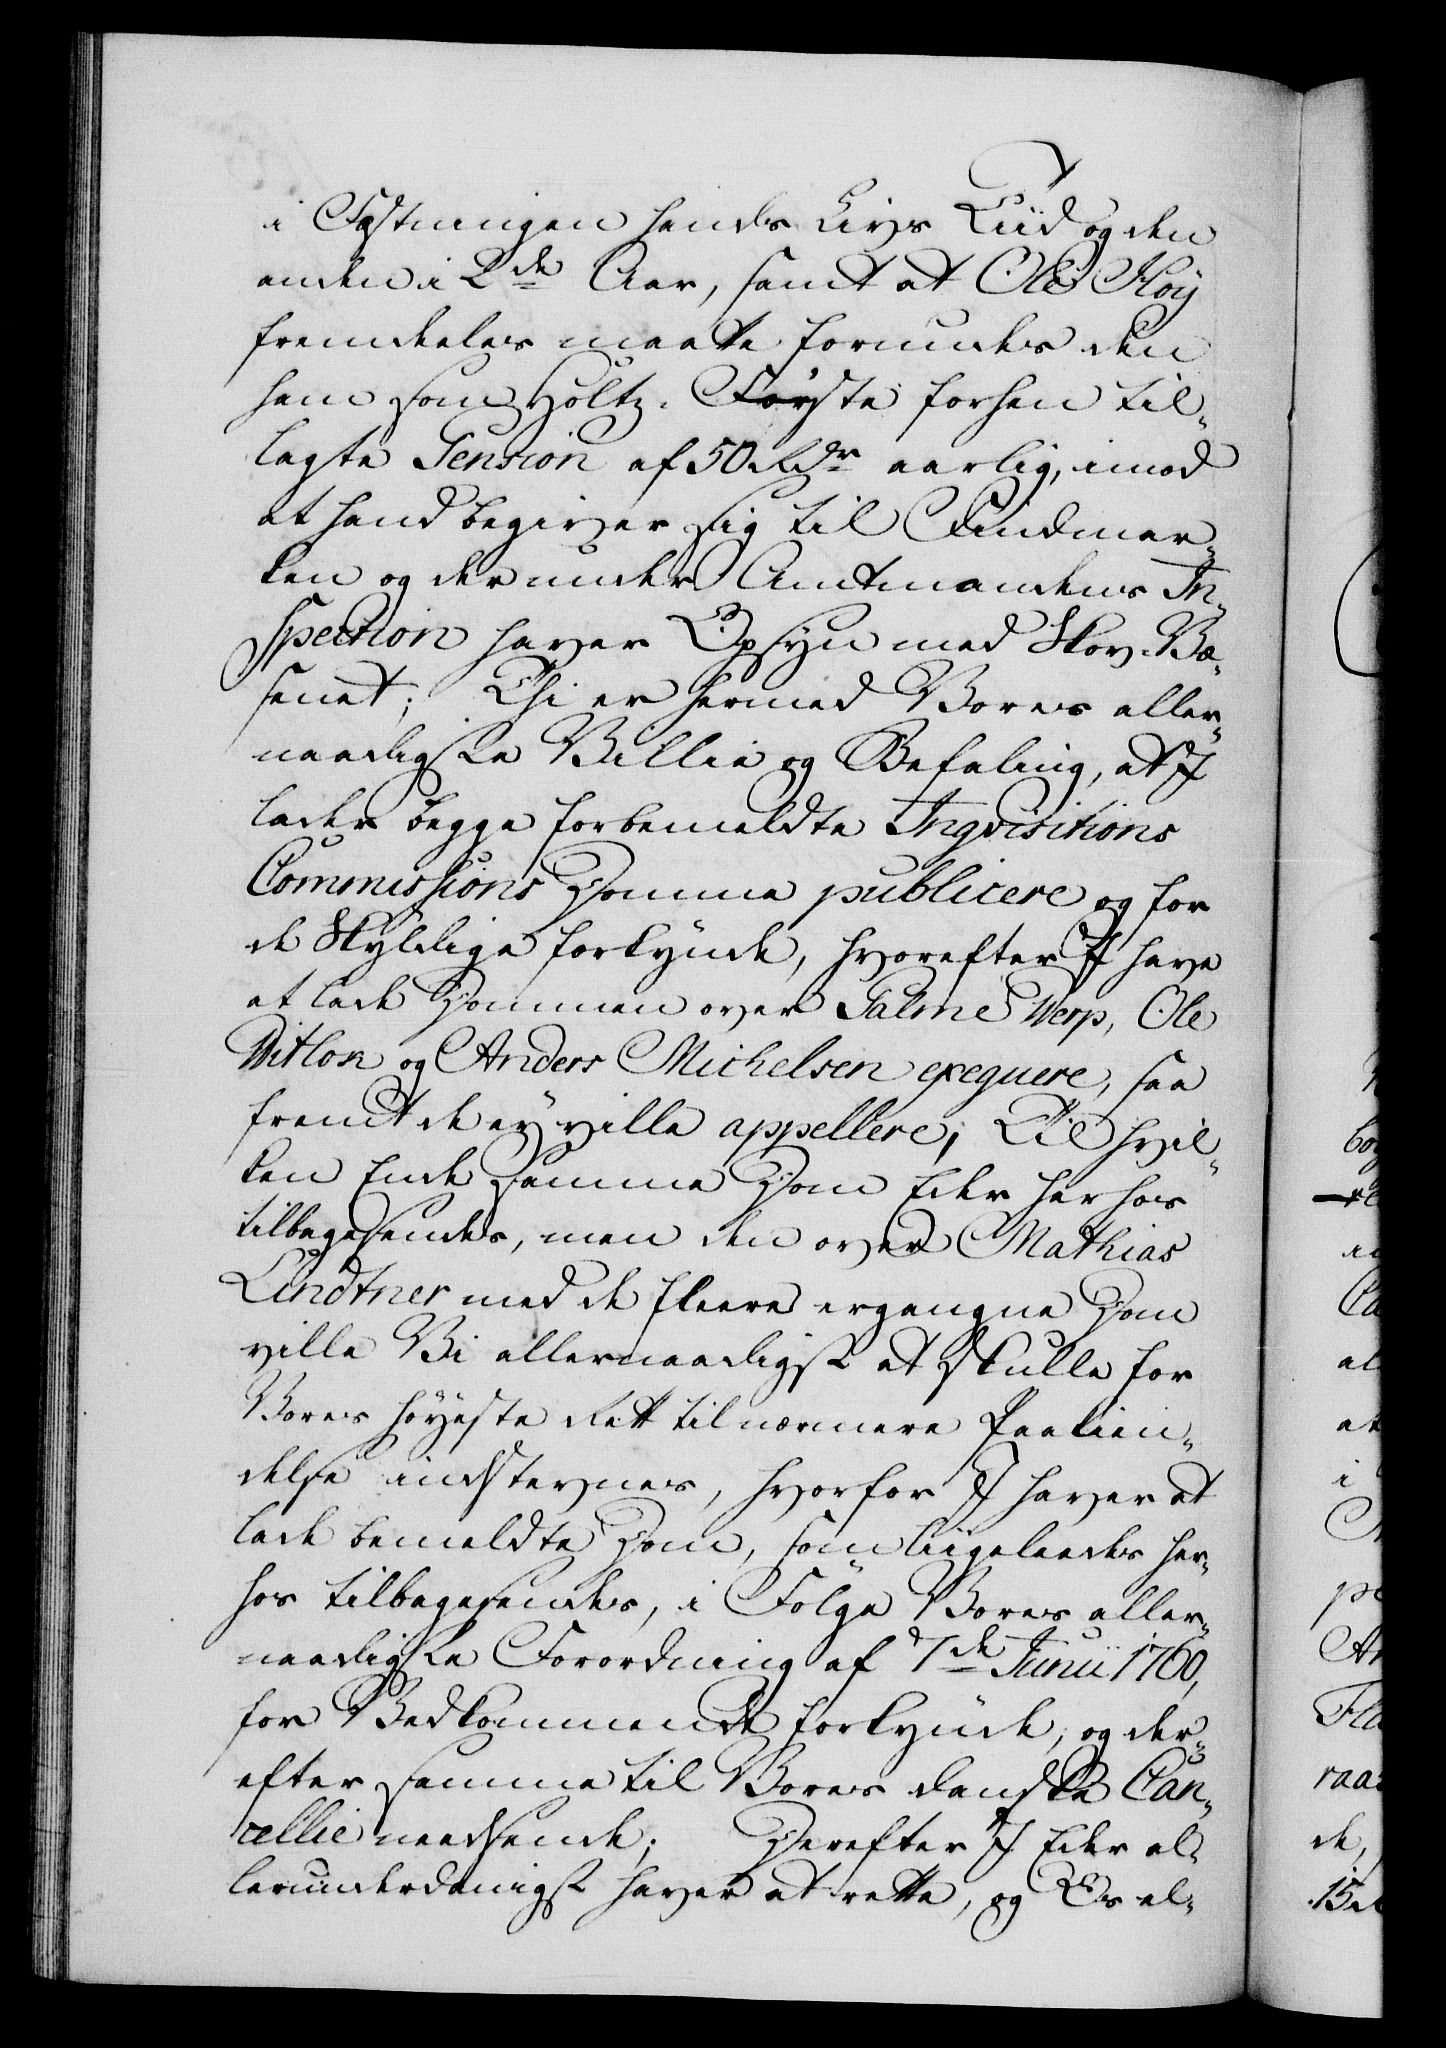 i Fæstningen hands Livs Tiid og den
anden i 2de Aar, samt at Ole Høy
fremdeeles maatte forundes den
ham som Holtz-Første forhen til-
lagte Pension af 50 Rdr aarlig, imod
at hand begiver sig til Findmar-
ken og der under Amtmandens In-
spection haver Opsyn med Skov-Væ-
senet; Thi er hermed Vores aller-
naadigste Villie og Befaling, at I
lader begge forbemeldte Inqvisitions
Commissions Domme publicere og for
de Skyldige forkynde, hvorefter I have
at lade Dommen over Palme Werp, Ole
Witlok og Anders Michelsen exequere, saa
fremt de ey ville appellere; Til hvil-
ken Ende samme Dom Eder her hos
tilbagesendes, men den over Mathias
Lindtner med de fleere ergangne Dom
ville Vi allernaadigst at skulle for
Vores høyeste Rett til nærmere Paakien-
delse indstevnes, hvorfor I haver at
lade bemeldte Dom, som liigeleedes her-
hos tilbagesendes, i Følge Vores aller-
naadigste Forordning af 7de Junii 1760,
for Vedkommende forkynde, og der-
efter samme til Vores danske Can-
cellie neersende; Derefter I Eder al-
lerunderdanigst haver at rette, og Os al-